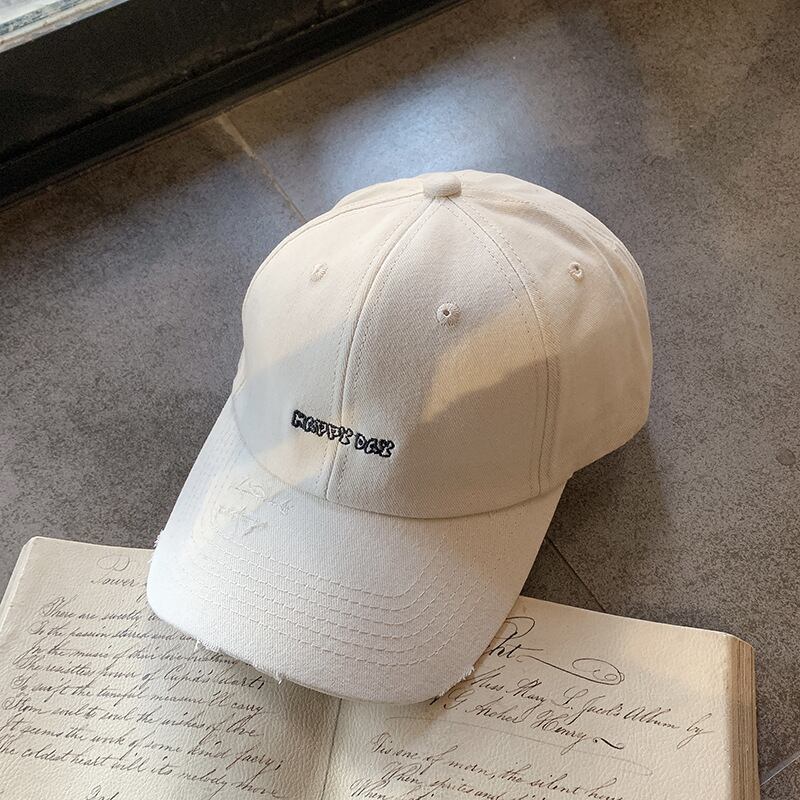 HAPPY DAY
Power
There are sweetly
To the passion stirred and
In the music of their
The resistless power of Cupid's dart;
To swift the tuneful measure'll carry
From soul to soul the wishes of love
It seems the work of some kind faery;
The coldest heart will its melody move
2d
Miss Mary L. Jacob's Album by
G Archer Henry
Tis one of morn, the silent hour
When sprites and
When